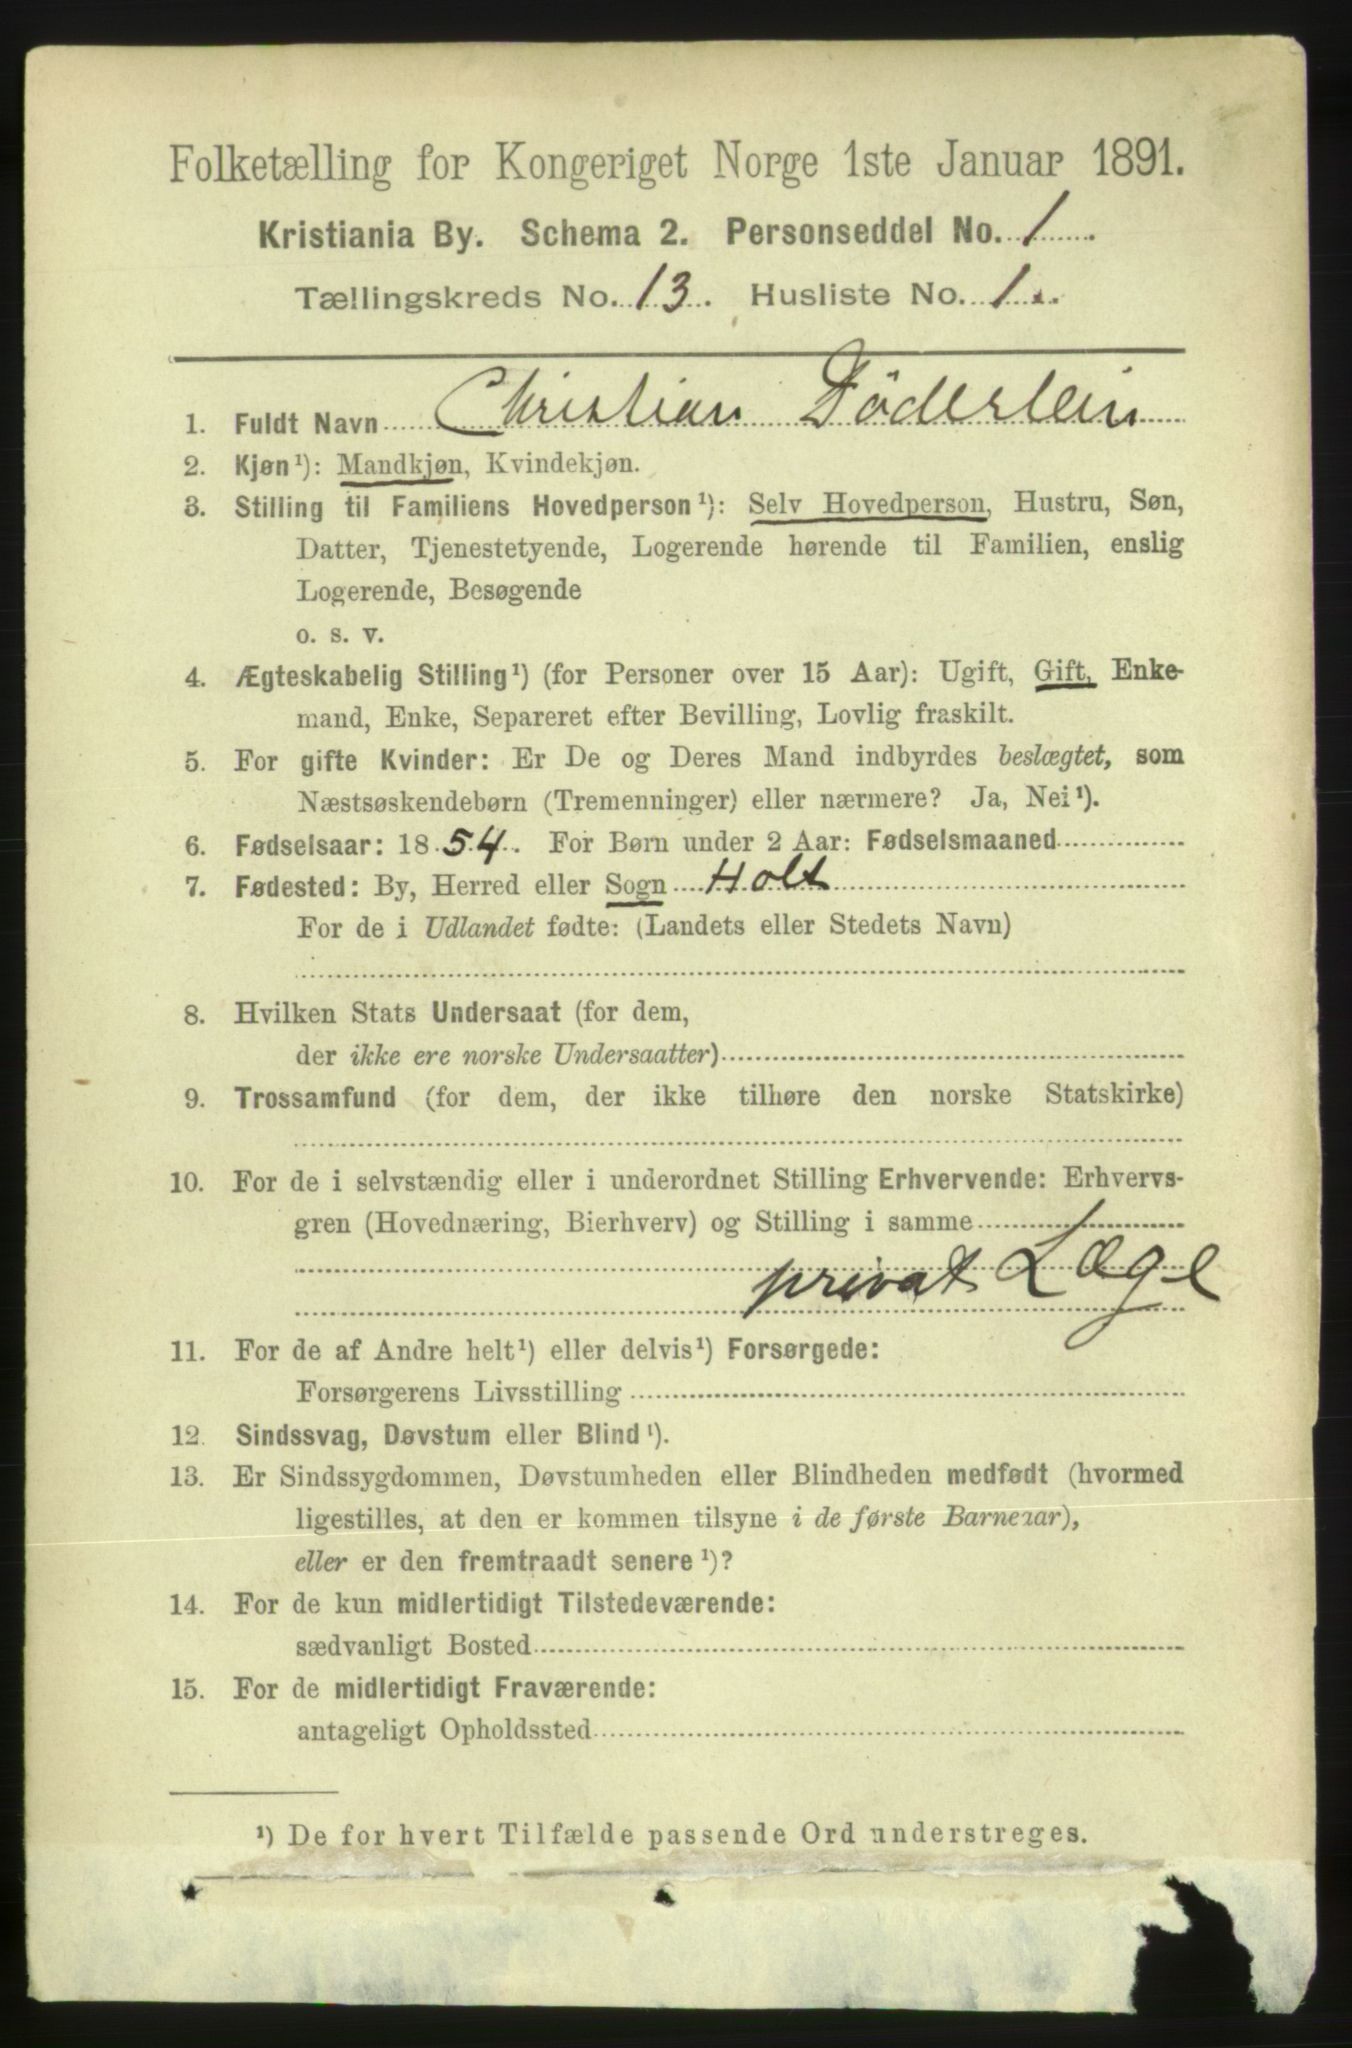 Folketælling for Kongeriget Norge 1ste Januar 1891.
Kristiania By. Schema 2. Personseddel No. 1
Tællingskreds No. 13. Husliste No. 1.
1. Fuldt Navn Christian Döderlein
2. Kjøn¹): Mandkjøn, Kvindekjøn.
3. Stilling til Familiens Hovedperson¹): Selv Hovedperson, Hustru, Søn,
Datter, Tjenestetyende, Logerende hørende til Familien, enslig
Logerende, Besøgende
o. s. v.
4. Ægteskabelig Stilling¹) (for Personer over 15 Aar): Ugift, Gift, Enke-
mand, Enke, Separeret efter Bevilling, Lovlig fraskilt.
5. For gifte Kvinder: Er De og Deres Mand indbyrdes beslægtet, som
Næstsøskendebørn (Tremenninger) eller nærmere? Ja, Nei¹).
6. Fødselsaar: 1854. For Børn under 2 Aar: Fødselsmaaned
7. Fødested: By, Herred eller Sogn Holt
For de i Udlandet fødte: (Landets eller Stedets Navn)
8. Hvilken Stats Undersaat (for dem,
der ikke ere norske Undersaatter)
9. Trossamfund (for dem, der ikke tilhøre den norske Statskirke)
10. For de i selvstændig eller i underordnet Stilling Erhvervende: Erhvervs-
gren (Hovednæring, Bierhverv) og Stilling i samme
privat Læge
11. For de af Andre helt¹) eller delvis¹) Forsørgede:
Forsørgerens Livsstilling
12. Sindssvag, Døvstum eller Blind¹).
13. Er Sindssygdommen, Døvstumheden eller Blindheden medfødt (hvormed
ligestilles, at den er kommen tilsyne i de første Barneaar),
eller er den fremtraadt senere¹)?
14. For de kun midlertidigt Tilstedeværende:
sædvanligt Bosted
15. For de midlertidigt Fraværende:
antageligt Opholdssted
¹) De for hvert Tilfælde passende Ord understreges.